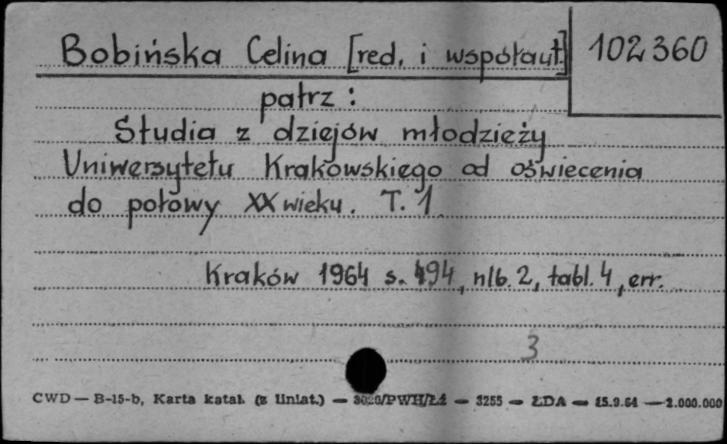 Bobińska Celina [red. i współaut.] 102360
patrz:
Studia z dziejów młodzieży
Uniwersytetu Krakowskiego od oświecenia
do połowy XX wieku. T. 1
Kraków 1964 s. 494, nlb. 2, tabl. 4, err.
3
CWD — B-15-b, Karta katal. (z liniat.) — — 3255 — ŁDA — 15.9.64 — 2.000.000